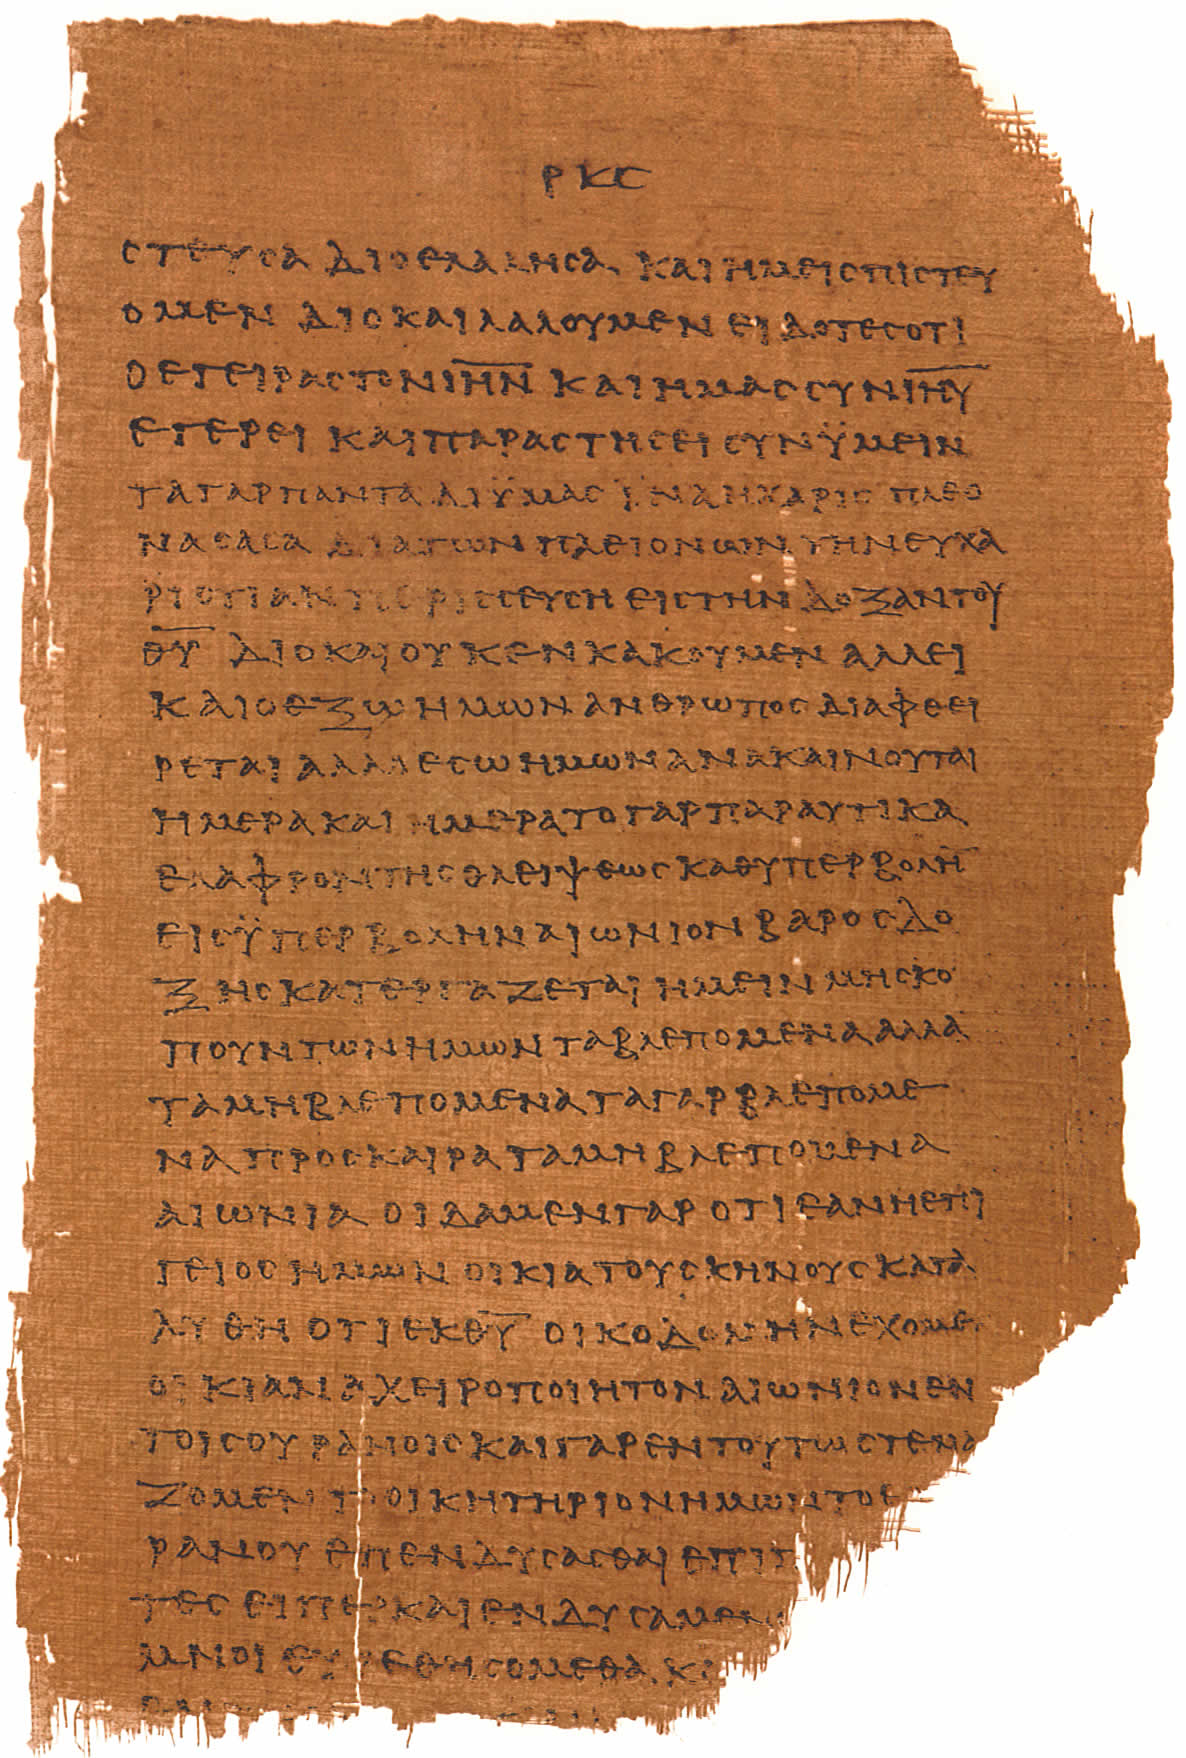 ΡΚϚ
ϹΤΕΥϹΑ ΔΙΟ ΕΛΑΛΗϹΑ ΚΑΙ ΗΜΕΙϹ ΠΙϹΤΕΥ
ΟΜΕΝ ΔΙΟ ΚΑΙ ΛΑΛΟΥΜΕΝ ΕΙΔΟΤΕϹ ΟΤΙ
Ο ΕΓΕΙΡΑϹ ΤΟΝ Ι̅Η̅Ν̅ ΚΑΙ ΗΜΑϹ ϹΥΝ Ι̅Η̅Υ̅
ΕΓΕΡΕΙ ΚΑΙ ΠΑΡΑϹΤΗϹΕΙ ϹΥΝ ΫΜΕΙΝ
ΤΑ ΓΑΡ ΠΑΝΤΑ ΔΙ ΫΜΑϹ ΪΝΑ Η ΧΑΡΙϹ ΠΛΕΟ
ΝΑϹΑϹΑ ΔΙΑ ΤΩΝ ΠΛΕΙΟΝΩΝ ΤΗΝ ΕΥΧΑ
ΡΙϹΤΙΑΝ ΠΕΡΙϹϹΕΥϹΗ ΕΙϹ ΤΗΝ ΔΟΞΑΝ ΤΟΥ
Θ̅Υ̅ ΔΙΟ ΚΑΙ ΟΥΚ ΕΝΚΑΚΟΥΜΕΝ ΑΛΛ ΕΙ
ΚΑΙ Ο ΕΞΩ ΗΜΩΝ ΑΝΘΡΩΠΟϹ ΔΙΑΦΘΕΙ
ΡΕΤΑΙ ΑΛΛ Ο ΕϹΩ ΗΜΩΝ ΑΝΑΚΑΙΝΟΥΤΑΙ
ΗΜΕΡΑ ΚΑΙ ΗΜΕΡΑ ΤΟ ΓΑΡ ΠΑΡΑΥΤΙΚΑ
ΕΛΑΦΡΟΝ ΤΗϹ ΘΛΕΙΨΕΩϹ ΚΑΘ ΥΠΕΡΒΟΛΗ̅
ΕΙϹ ΫΠΕΡΒΟΛΗΝ ΑΙΩΝΙΟΝ ΒΑΡΟϹ ΔΟ
ΞΗϹ ΚΑΤΕΡΓΑΖΕΤΑΙ ΗΜΕΙΝ ΜΗ ϹΚΟ
ΠΟΥΝΤΩΝ ΗΜΩΝ ΤΑ ΒΛΕΠΟΜΕΝΑ ΑΛΛΑ
ΤΑ ΜΗ ΒΛΕΠΟΜΕΝΑ ΤΑ ΓΑΡ ΒΛΕΠΟΜΕ
ΝΑ ΠΡΟϹΚΑΙΡΑ ΤΑ ΜΗ ΒΛΕΠΟΜΕΝΑ
ΑΙΩΝΙΑ ΟΙΔΑΜΕΝ ΓΑΡ ΟΤΙ ΕΑΝ Η ΕΠΙ
ΓΕΙΟϹ ΗΜΩΝ ΟΙΚΙΑ ΤΟΥ ϹΚΗΝΟΥϹ ΚΑΤΑ
ΛΥΘΗ ΟΤΙ ΕΚ Θ̅Υ̅ ΟΙΚΟΔΟΜΗΝ ΕΧΟΜΕ
ΟΙΚΙΑΝ ΑΧΕΙΡΟΠΟΙΗΤΟΝ ΑΙΩΝΙΟΝ ΕΝ
ΤΟΙϹ ΟΥΡΑΝΟΙϹ ΚΑΙ ΓΑΡ ΕΝ ΤΟΥΤΩ ϹΤΕΝΑ
ΖΟΜΕΝ ΤΟ ΟΙΚΗΤΗΡΙΟΝ ΗΜΩΝ ΤΟ Ε
ΡΑΝΟΥ ΕΠΕΝΔΥϹΑϹΘΑΙ ΕΠΙΠ
ΤΕϹ ΕΙΠΕΡ ΚΑΙ ΕΝΔΥϹΑΜΕΝ
ΜΝΟΙ ΕΥΡΕΘΗϹΟΜΕΘΑ ΚΑ